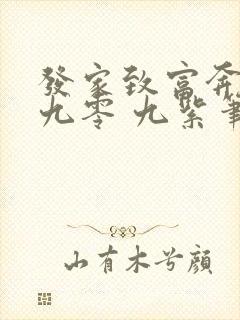 發家致富奔
九零 九紫筆
山有木兮顏